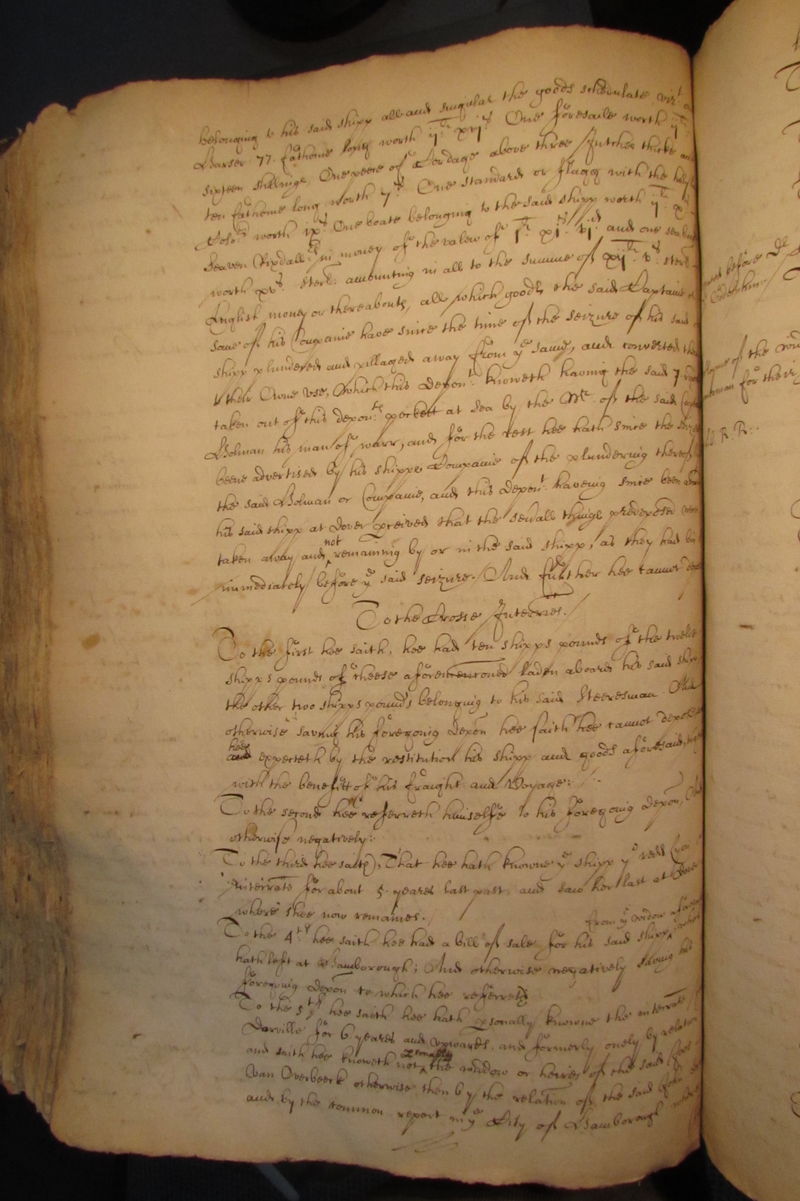 belonging to his said shipp all and singular the goods schedulate vizt
Hawser 77. fathome long worth ij li xvj s One foresaile worth ij li
sixteen shillings, One peece of Cordage above three Inches thicke and
ten fathome long worth 7 s. One Standard or flagg with the
Colo rs worth ix s. One boate belonging to the said shipp worth ij li x
Seaven Rixdall rs in money of the valew of j li xj s vj d and one
worth xv s. sterl: amounting in all to the summe of xij li v s sterl.
English money or thereabouts, all which goods the said Captaine or
some of his Companie have since the time of the seizure of his said
shipp plundered and pillaged away from ye same, and converted them
to their owne use, Which this Depon t knoweth having the said 7
taken out of this depon ts pockett at Sea by the M r. of the said Captaine
Bolman his man of warr, and for the rest hee hath since the
beene advertised by his shipps Companie of the plundering thereof
the said Bolman or Companie, and this depon t haveing since been
his said shipp at Dover p͞ceived that the sevall things p͞deposed
taken away and not remaining by or in the said shipp, as they had bin
immediately before ye said seizure. And further hee cannot depose
To the Crosse Interries.
To the first hee saith, hee had ten shipps pounds of the twelve
shipps pounds of cheese aforementioned laden aboard his said shipp
the other two shipps pounds belonging to his said Steeresman. And
otherwise saving his foregoing depon hee saith hee cannot depose
hee expecteth by the restitution his shipp and goods aforesaid,
with the benefitt of his fraught and Voyage:
To the second hee referreth himselfe to his foregoing depon, And
otherwise negatively:
To the third hee saith, That hee hath knowne ye shipp ye
Interrate for about 5. yeares last past, and saw her last at Dover
where shee now remaines.
To the 4 th hee saith hee had a bill of sale for his said shipp from ye widow
hath left at Hamborough; And otherwise negatively saving his
foregoing depon to which hee referreth
To the 5 th hee saith hee hath p͞sonally knowne the interrate
Darville for 6 yeares and upwards, and formerly onely by relation
and saith hee knoweth not the widdow or heires of the said
Van Overbeeck otherwise then by the relation of the said
and by the common report in ye City of Hamborough